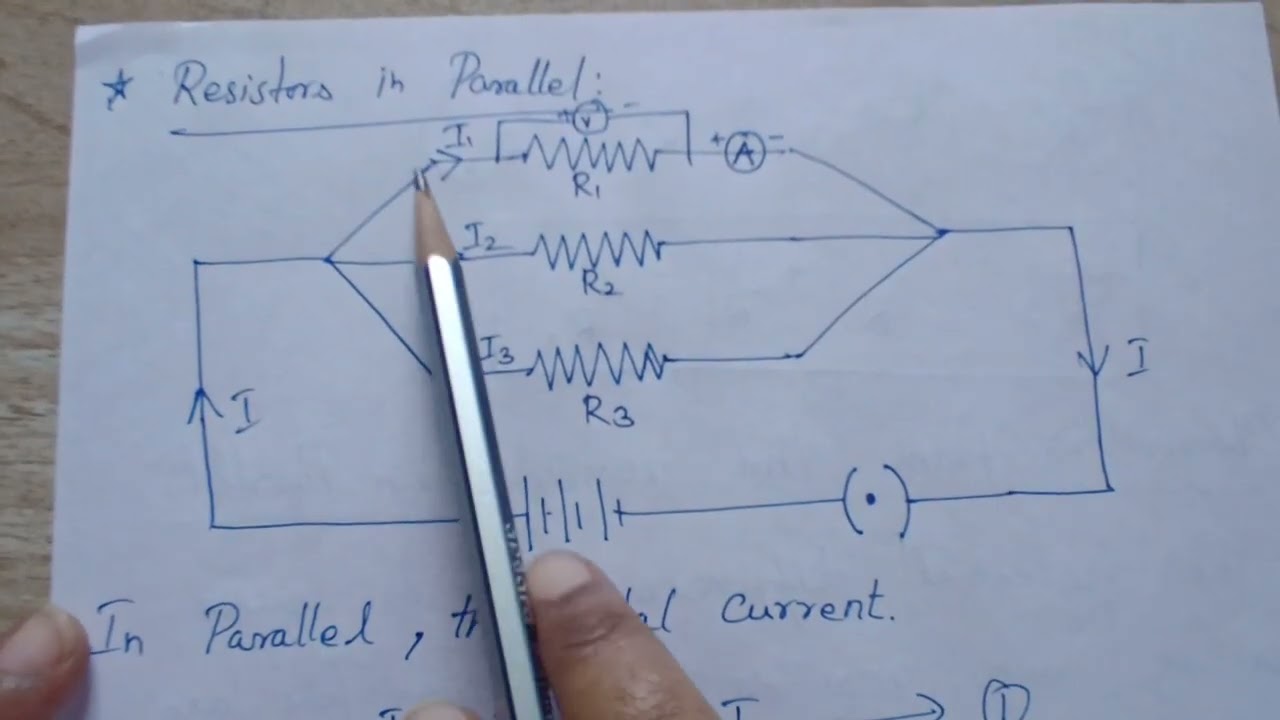 ★ Resistors in Parallel:
+ V -
I₁
R₁
+ A -
I₂
R₂
I₃
R₃
I
I
In Parallel, current.
I ①